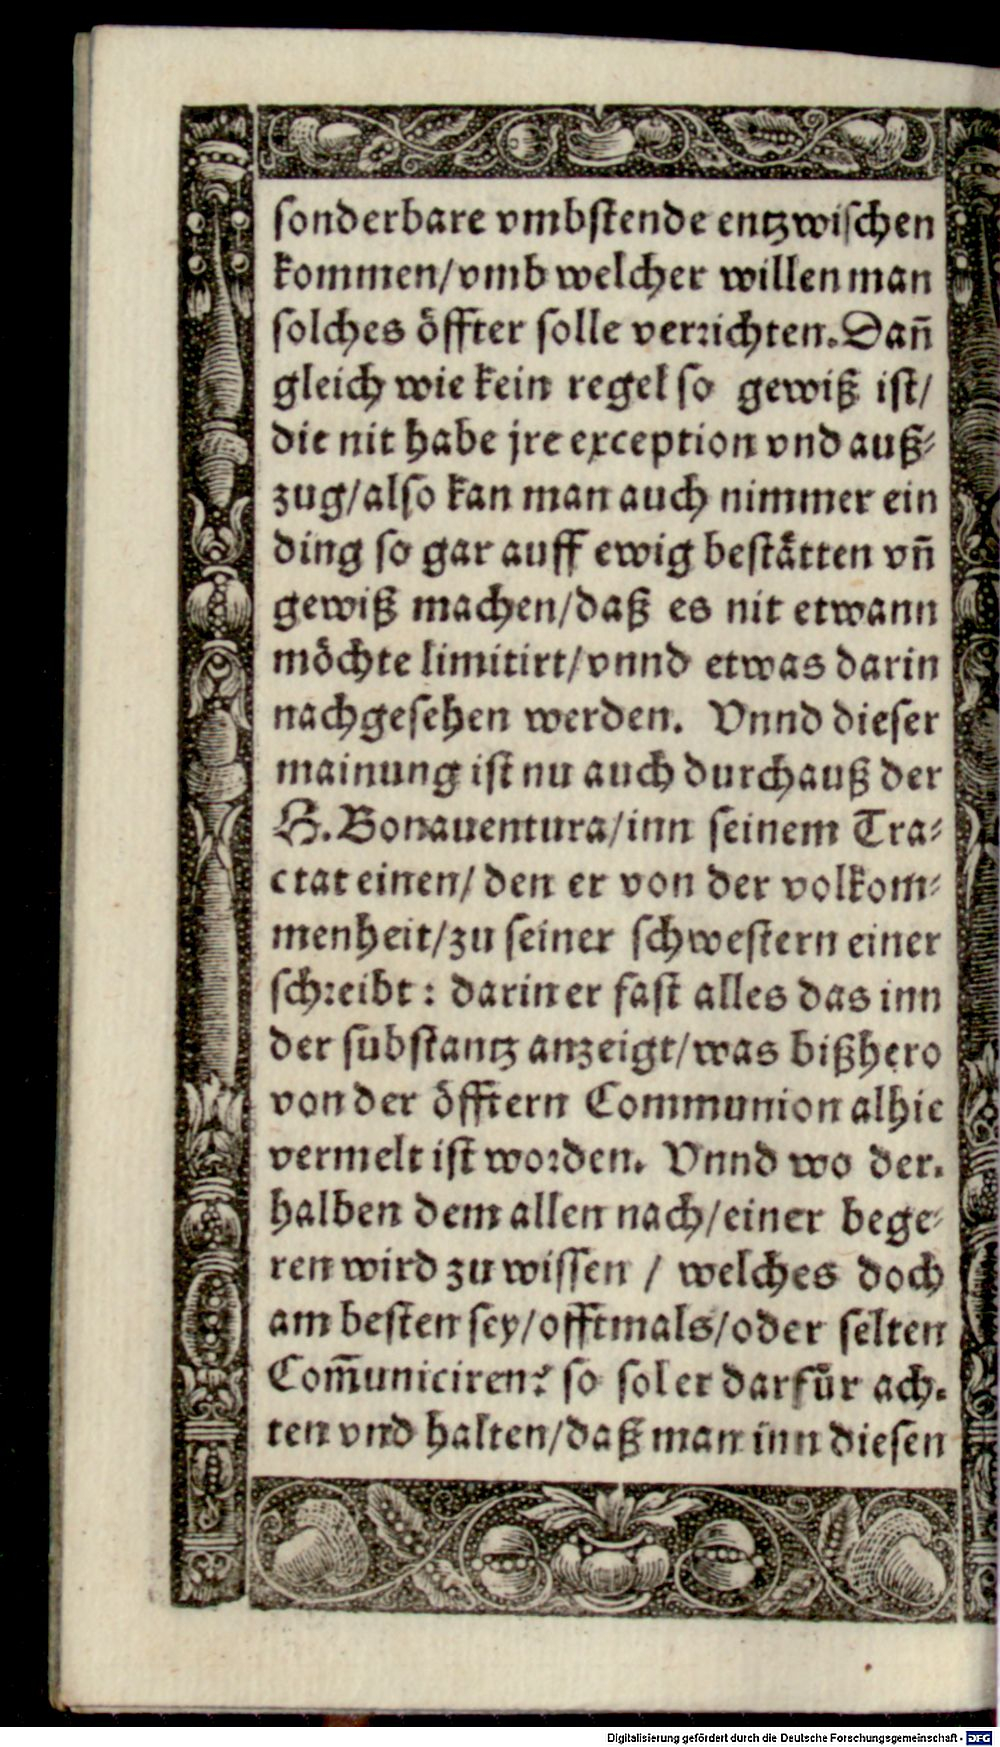 sonderbare vmbstende entzwischen
kommen/vmb welcher willen man
solches öffter solle verrichten. Dañ
gleich wie kein regel so gewiß ist/
die nit habe jre exception vnd auß⸗
zug/also kan man auch nimmer ein
ding so gar auff ewig bestätten vñ
gewiß machen/daß es nit etwann
möchte limitirt/vnnd etwas darin
nachgesehen werden. Vnnd dieser
mainung ist nu auch durchauß der
H. Bonauentura/inn seinem Tra⸗
ctat einen/ den er von der volkom⸗
menheit/zu seiner schwestern einer
schreibt: darin er fast alles das inn
der substantz anzeigt/was bißhero
von der öfftern Communion alhie
vermelt ist worden. Vnnd wo der.
halben dem allen nach/einer bege⸗
ren wird zu wissen / welches doch
am besten sey/offtmals/oder selten
Com̃uniciren? so sol er darfür ach.
ten vnd halten/daß man inn diesen
Digitalisierung gefördert durch die Deutsche Forschungsgemeinschaft - DFG